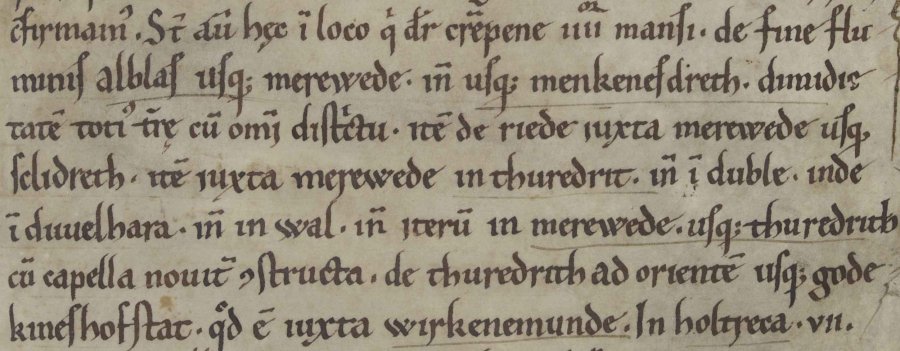 c̄firmamꝰ. St̄ aū hęc ī loco q̇ dr̄ crēpene iiiiᵒʳ mansi. de fine flu
minis alblas usq; merewede. in̄ usq; menkenesdrech. dimidie
tatē totiꝰ tr̄ę cū om̄i distc̄tu. itē de riede iuxta merewede usq;
sclidrech. itē iuxta merewede in thuredrit. in̄ ī duble. inde
ī duuelhara. in̄ in wal. in̄ iterū in merewede. usq; thuredrich
cū capella nouit̄ ꝯstructa. de thuredrich ad orientē usq; gode
kineshofstat. qd̄ ē iuxta wirkenemunde. In holtreca. vii.